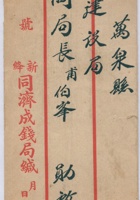 萬泉縣
建設局
周局長甫伯峯 勛啟
新絳同濟成錢局緘
號
月
日